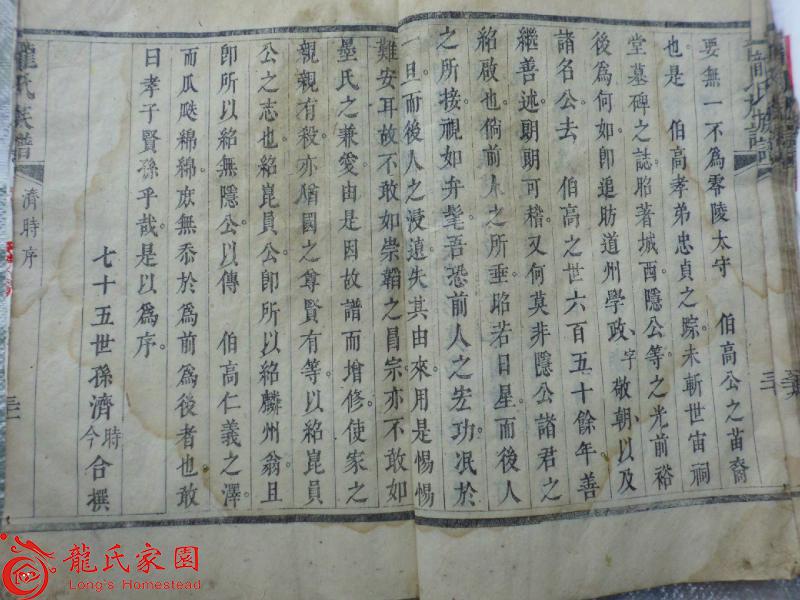 要無一不為零陵太守 伯高公之苗裔
也是 伯高孝弟忠貞之踪未斬世宙祠
堂墓碑之誌昭著城西隱公等之光前裕
後為何如即追肪道州學政字敬朝以及
諸名公去 伯高之世六百五十餘年善
繼善述朗朗可稽又何莫非隱公諸君之
紹啟也倘前人之所垂昭若日星而後人
之所接視如弁髦吾恐前人之宏功泯於
一旦而後人之浸遠失其由來用是惕惕
難安耳故不敢如崇韜之昌宗亦不敢如
墨氏之兼愛由是因故譜而增修使家之
親親有殺亦猶國之尊賢有等以紹崑員
公之志也紹崑員公卽所以紹麟州翁且
卽所以紹無隱公以傳 伯高仁義之澤
而瓜瓞綿綿庶無忝於為前為後者也敢
曰孝子賢孫乎哉是以為序
七十五世孫濟時今合撰
龍氏族譜
濟時序
三
龍氏族譜
龍氏家園
Long's Homestead